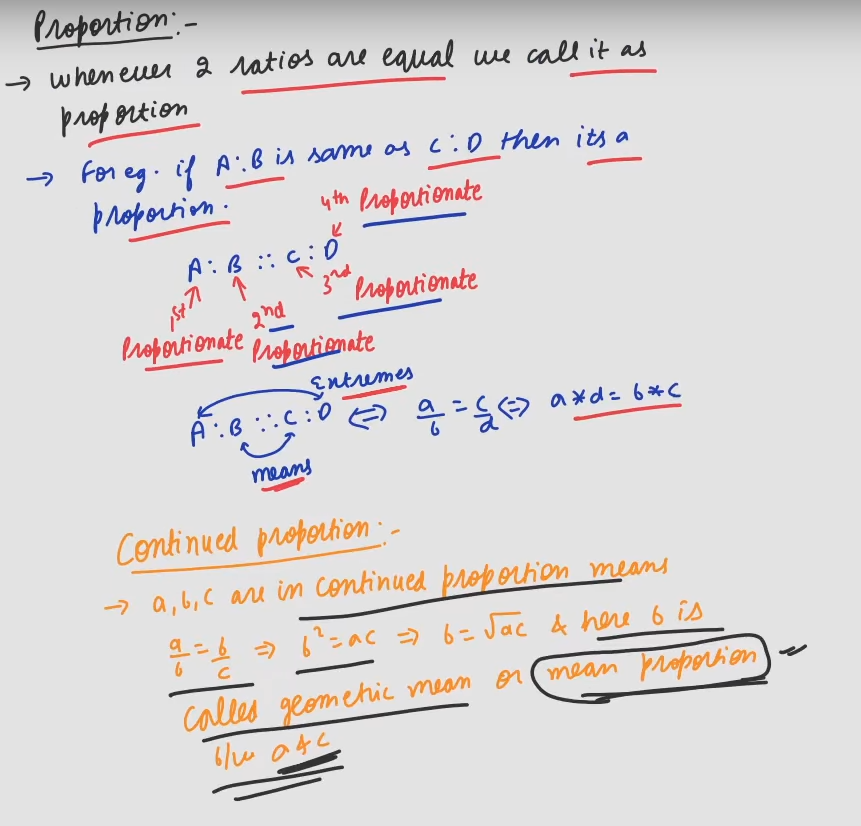 Proportion:-
→ whenever 2 ratios are equal we call it as
proportion
→ For eg. if A:B is same as C:D then its a
proportion.
4th Proportionate
A:B :: C:D
3rd Proportionate
1st Proportionate
2nd Proportionate
Extremes
A:B :: C:D ⇔ a/b = c/d ⇔ a*d = b*c
means
Continued proportion:-
→ a,b,c are in continued proportion means
a/b = b/c ⇒ b² = ac ⇒ b = √ac & here b is
called geometric mean or mean proportion
b/w a & c